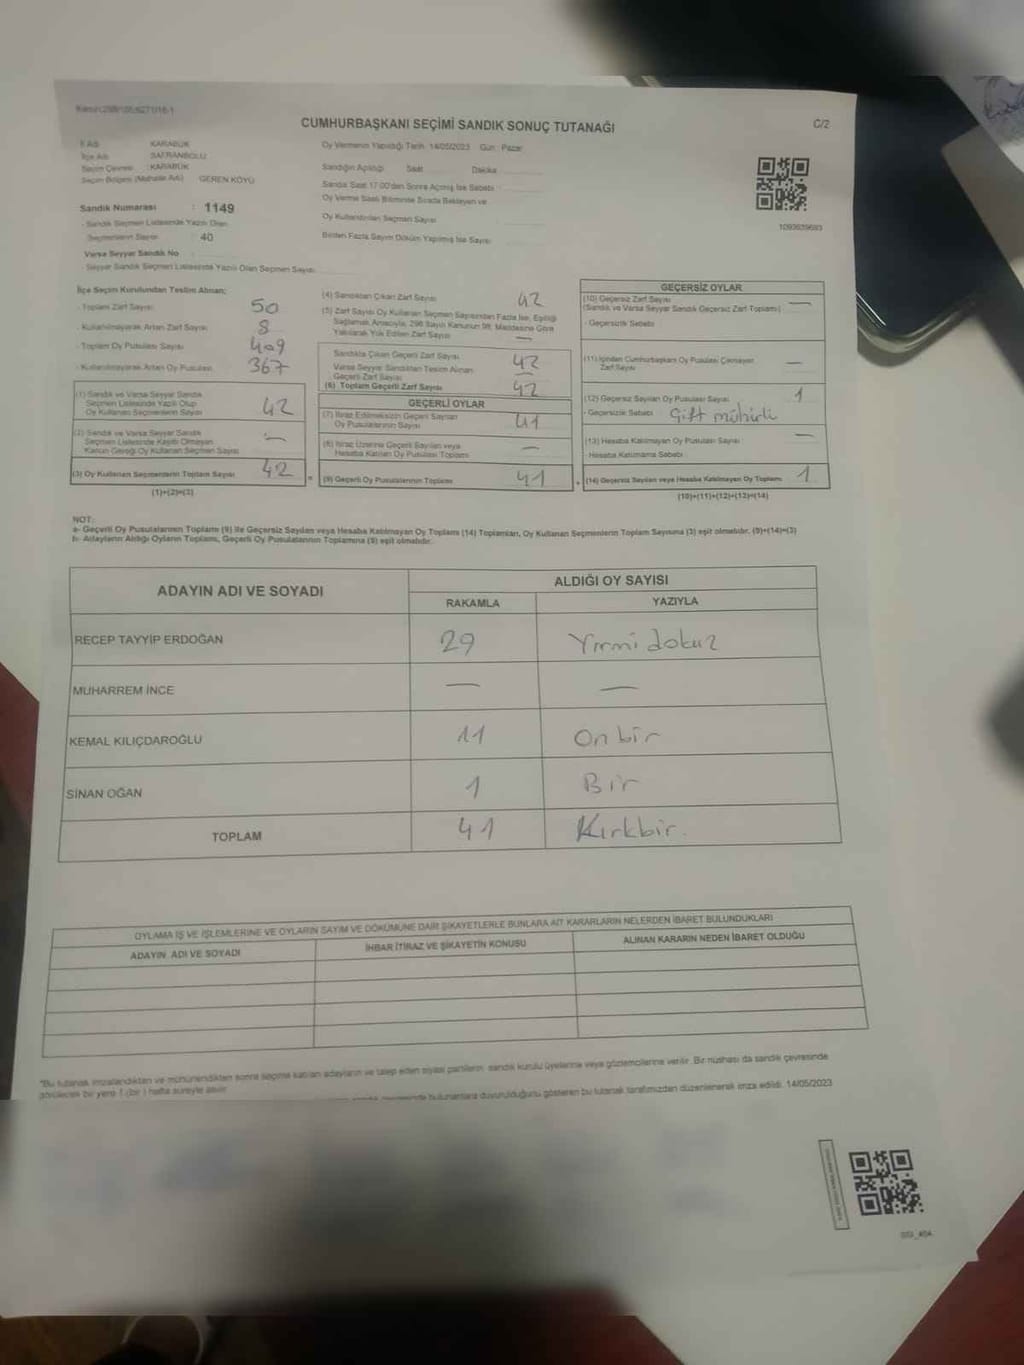 CUMHURBAŞKANI SEÇİMİ SANDIK SONUÇ TUTANAĞI
C/2
İl Adı KARABÜK
İlçe Adı SAFRANBOLU
Seçim Çevresi : KARABÜK
Seçim Bölgesi (Mahalle Adı) GEREN KÖYÜ
Sandık Numarası : 1149
- Sandık Seçmen Listesinde Yazılı Olan
Seçmenlerin Sayısı 40
Varsa Seyyar Sandık No
- Seyyar Sandık Seçmen Listesinde Yazılı Olan Seçmen Sayısı
Oy Vermenin Yapıldığı Tarih 14/05/2023 Gün : Pazar
Sandığın Açıldığı Saat Dakika
Sandık Saat 17.00'den Sonra Açılmış İse Sebebi
Oy Verme Saati Bitiminde Sırada Bekleyen ve
Oy Kullandırılan Seçmen Sayısı
Birden Fazla Sayım Döküm Yapılmış İse Sayısı
1093639693
İlçe Seçim Kurulundan Teslim Alınan;
- Toplam Zarf Sayısı 50
- Kullanılmayarak Artan Zarf Sayısı 8
- Toplam Oy Pusulası Sayısı 409
- Kullanılmayarak Artan Oy Pusulası 367
(1) Sandık ve Varsa Seyyar Sandık
Seçmen Listesinde Yazılı Olup
Oy Kullanan Seçmenlerin Sayısı 42
(2) Sandık ve Varsa Seyyar Sandık
Seçmen Listesinde Kayıtlı Olmayan
Kanun Gereği Oy Kullanan Seçmen Sayısı —
(3) Oy Kullanan Seçmenlerin Toplam Sayısı 42
(1)+(2)=(3)
(4) Sandıktan Çıkan Zarf Sayısı 42
(5) Zarf Sayısı Oy Kullanan Seçmen Sayısından Fazla İse, Eşitliği
Sağlamak Amacıyla, 298 Sayılı Kanunun 98. Maddesine Göre
Yakılarak Yok Edilen Zarf Sayısı —
Sandıkta Çıkan Geçerli Zarf Sayısı 42
Varsa Seyyar Sandıktan Teslim Alınan
Geçerli Zarf Sayısı —
(6) Toplam Geçerli Zarf Sayısı 42
GEÇERLİ OYLAR
(7) İtiraz Edilmeksizin Geçerli Sayılan
Oy Pusulalarının Sayısı 41
(8) İtiraz Üzerine Geçerli Sayılan veya
Hesaba Katılan Oy Pusulası Toplamı —
(9) Geçerli Oy Pusulalarının Toplamı 41
GEÇERSİZ OYLAR
(10) Geçersiz Zarf Sayısı —
(Sandık ve Varsa Seyyar Sandık Geçersiz Zarf Toplamı)
- Geçersizlik Sebebi
(11) İçinden Cumhurbaşkanı Oy Pusulası Çıkmayan
Zarf Sayısı —
(12) Geçersiz Sayılan Oy Pusulası Sayısı 1
- Geçersizlik Sebebi Çift mühürlü
(13) Hesaba Katılmayan Oy Pusulası Sayısı —
- Hesaba Katılmama Sebebi
(14) Geçersiz Sayılan veya Hesaba Katılmayan Oy Toplamı 1
(10)+(11)+(12)+(13)=(14)
NOT:
a- Geçerli Oy Pusulalarının Toplamı (9) ile Geçersiz Sayılan veya Hesaba Katılmayan Oy Toplamı (14) Toplamları, Oy Kullanan Seçmenlerin Toplam Sayısına (3) eşit olmalıdır. (9)+(14)=(3)
b- Adayların Aldığı Oyların Toplamı, Geçerli Oy Pusulalarının Toplamına (9) eşit olmalıdır.
ADAYIN ADI VE SOYADI
ALDIĞI OY SAYISI
RAKAMLA YAZIYLA
RECEP TAYYİP ERDOĞAN 29 Yirmi dokuz
MUHARREM İNCE — —
KEMAL KILIÇDAROĞLU 11 On bir
SİNAN OĞAN 1 Bir
TOPLAM 41 Kırkbir.
OYLAMA İŞ VE İŞLEMLERİNE VE OYLARIN SAYIM VE DÖKÜMÜNE DAİR ŞİKAYETLERLE BUNLARA AİT KARARLARIN NELERDEN İBARET BULUNDUKLARI
ADAYIN ADI VE SOYADI İHBAR İTİRAZ VE ŞİKAYETİN KONUSU ALINAN KARARIN NEDEN İBARET OLDUĞU
"Bu tutanak imzalandıktan ve mühürlendikten sonra seçime katılan adayların ve talep eden siyasi partilerin, sandık kurulu üyelerine veya gözlemcilerine verilir. Bir nüshası da sandık çevresinde
görülecek bir yere 1 (bir ) hafta süreyle asılır.
bulunanlara duyurulduğunu gösteren bu tutanak tarafımızdan düzenlenerek imza edildi. 14/05/2023